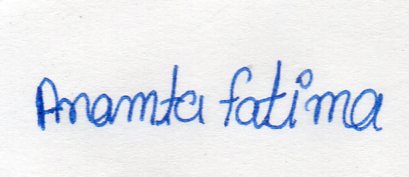 Anamta fatima